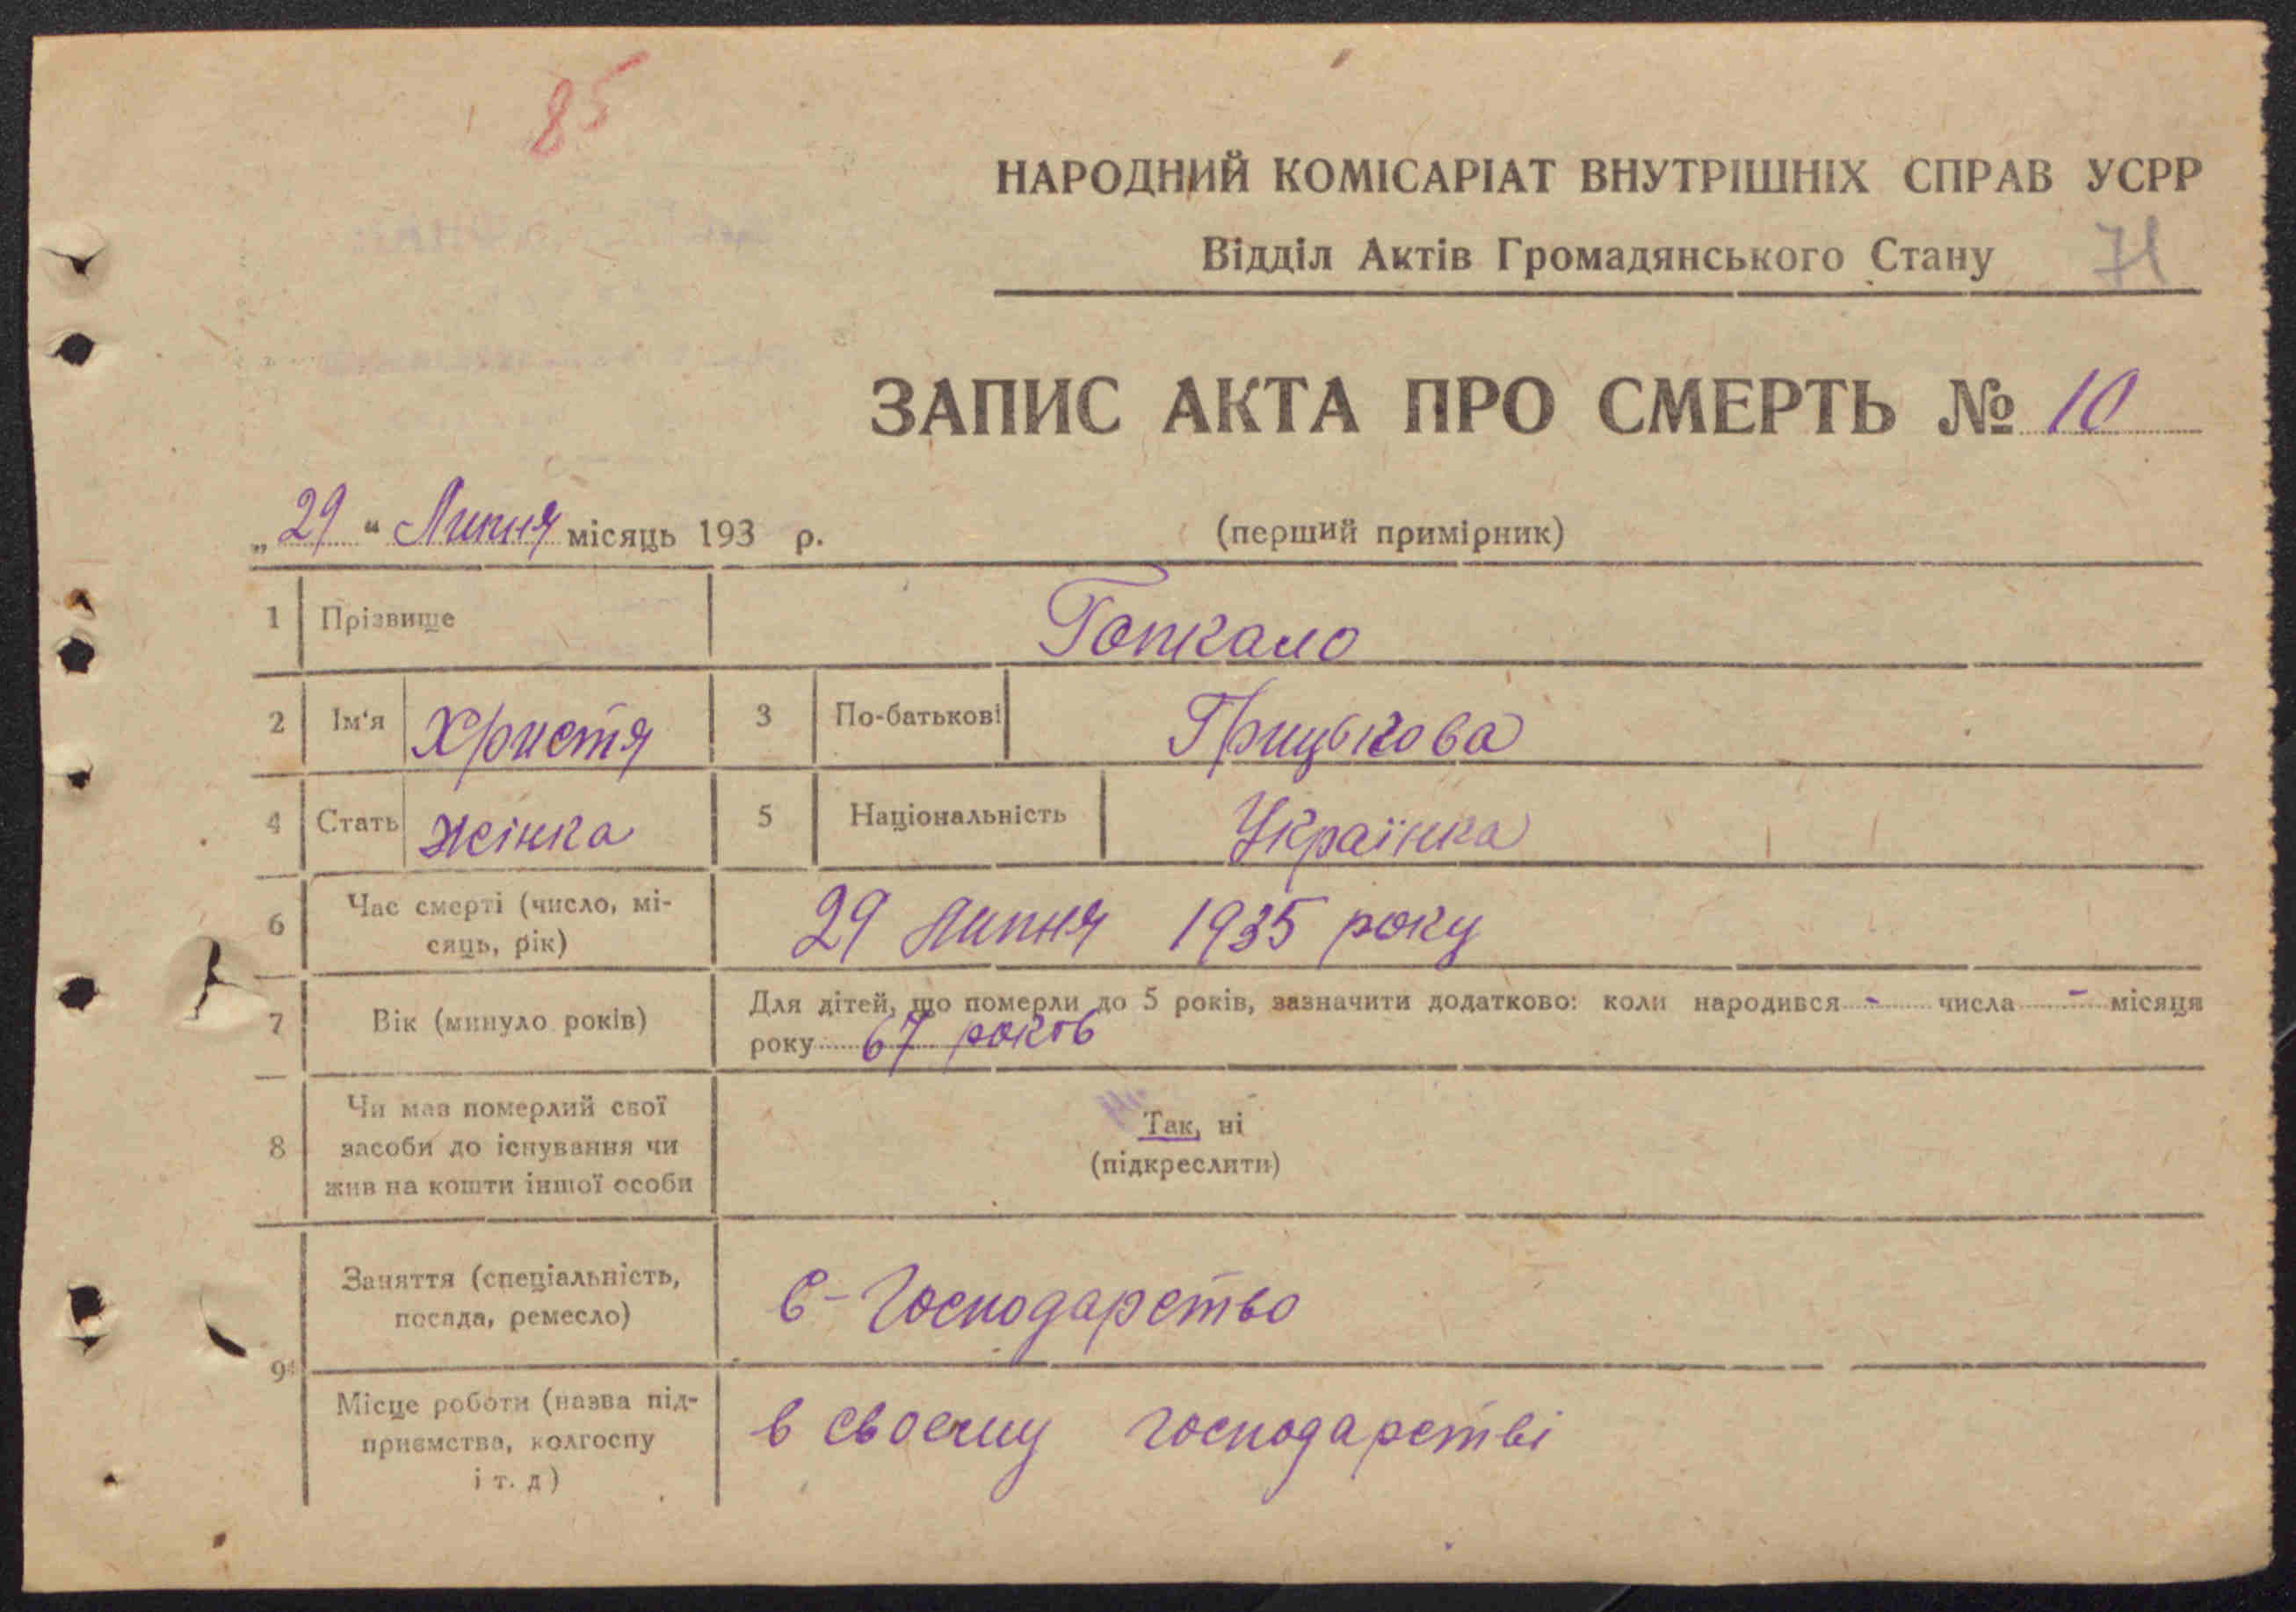 85
НАРОДНИЙ КОМІСАРІАТ ВНУТРІШНІХ СПРАВ УСРР
Відділ Актів Громадянського Стану 71
ЗАПИС АКТА ПРО СМЕРТЬ № 10
„29“ Липня місяць 193 р. (перший примірник)
1 Прізвище Гопкало
2 Ім'я Христя 3 По-батькові Грицькова
4 Стать жінка 5 Національність Українка
6 Час смерті (число, мі-
сяць, рік) 29 липня 1935 року
7 Вік (минуло років) Для дітей, що померли до 5 років, зазначити додатково: коли народився - числа - місяця
року 67 років
8 Чи мав померлий свої
засоби до існування чи
жив на кошти іншої особи
Так, ні
(підкреслити)
9 Заняття (спеціальність,
посада, ремесло) С-Господарство
Місце роботи (назва під-
приємства, колгоспу
і т. д)
в своєму господарстві